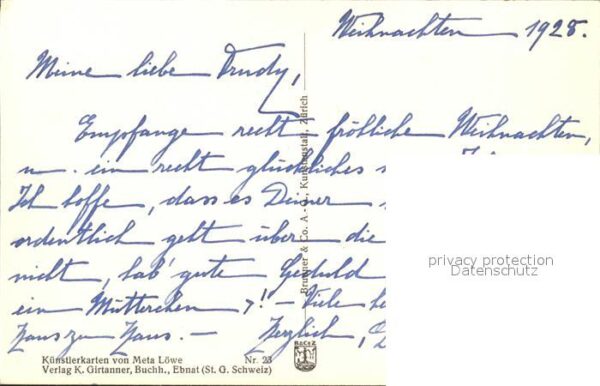 Weihnachten 1928.
Meine liebe Trudy,
Empfange recht fröhliche Weihnachten,
u. ein recht glückliches
Ich hoffe, dass es Deiner
ordentlich geht über die
nicht, hab' gute Geduld
ein Mütterchen ! – Viele
Haus zu Haus. – Herzlich,
Brunner & Co. A.-G., Kunstanstalt, Zürich
privacy protection
Datenschutz
Künstlerkarten von Meta Löwe Nr. 23
Verlag K. Girtanner, Buchh., Ebnat (St. G. Schweiz)